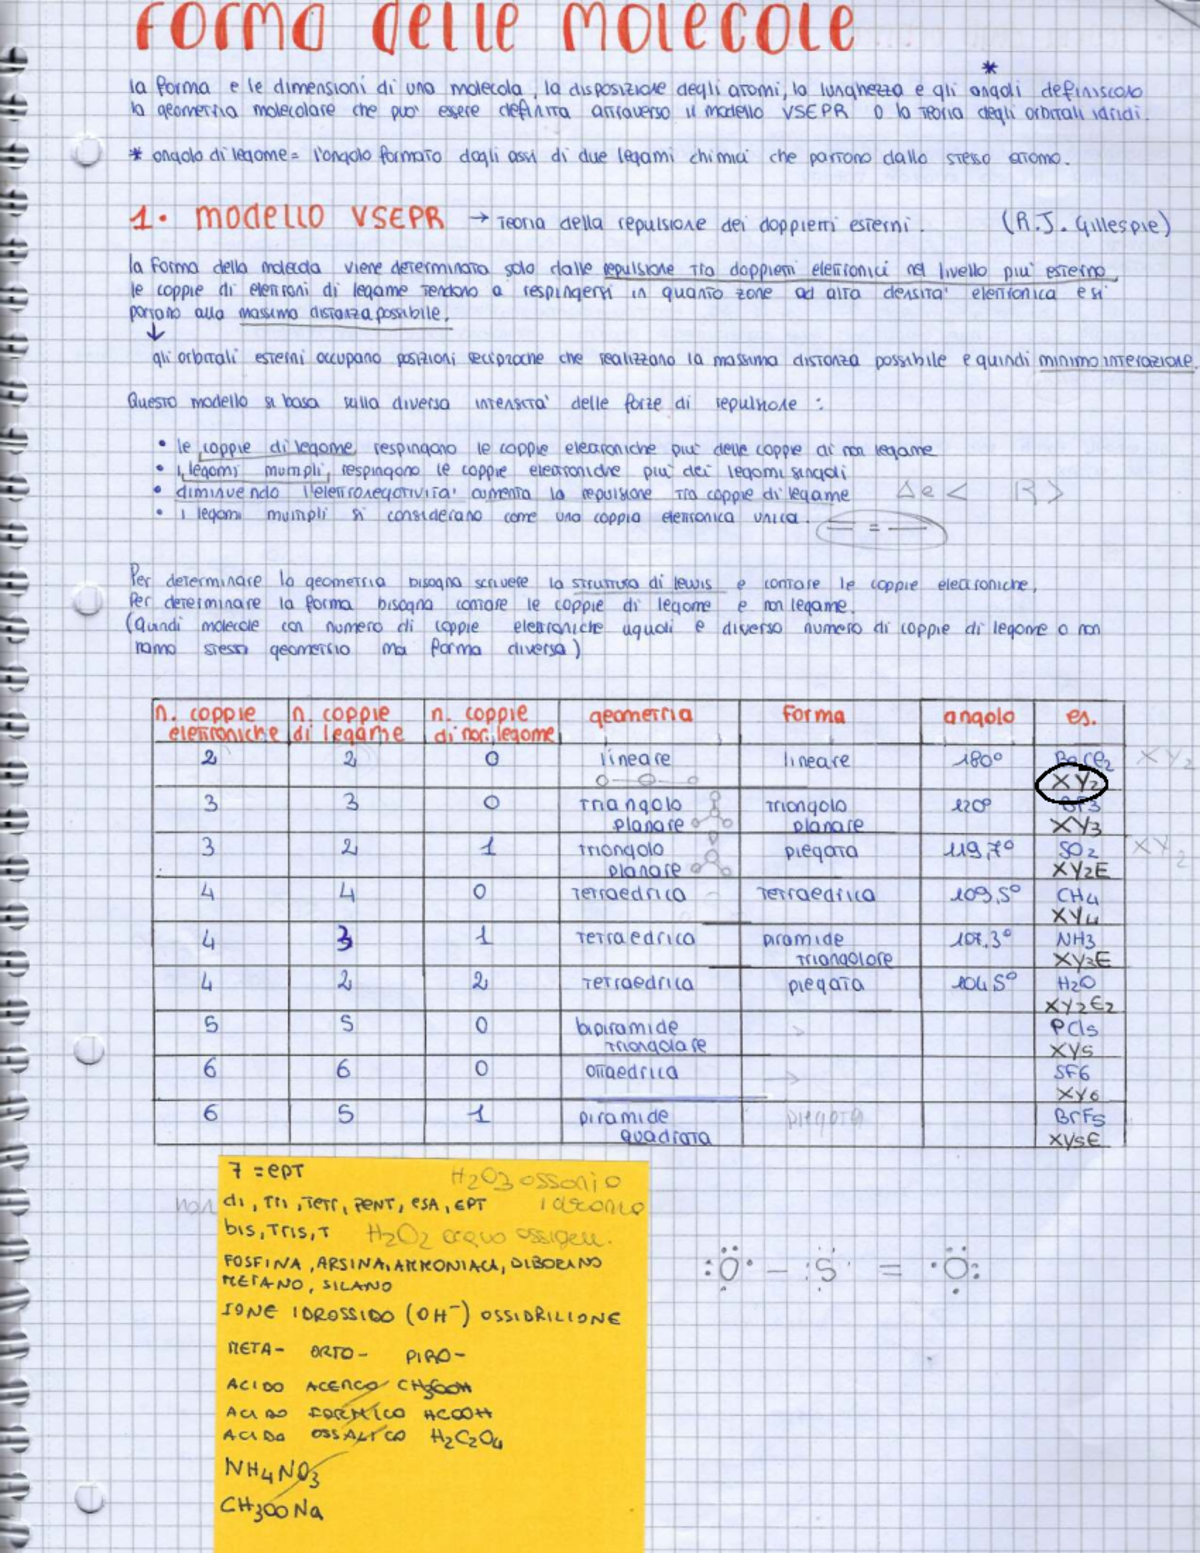 Forma delle molecole
la forma e le dimensioni di una molecola, la disposizione degli atomi, la lunghezza e gli angoli* definiscono
la geometria molecolare che può essere definita attraverso il modello VSEPR o la teoria degli orbitali ibridi.
* angolo di legame = l'angolo formato dagli assi di due legami chimici che partono dallo stesso atomo.
1. MODELLO VSEPR → Teoria della repulsione dei doppietti esterni. (R.J. Gillespie)
la forma della molecola viene determinata solo dalle repulsione tra doppietti elettronici nel livello più esterno,
le coppie di elettroni di legame tendono a respingersi in quanto zone ad alta densità elettronica e si
portano alla massima distanza possibile.
↓
gli orbitali esterni occupano posizioni reciproche che realizzano la massima distanza possibile e quindi minimo interazione.
Questo modello si basa sulla diversa intensità delle forze di repulsione :
• le coppie di legame respingono le coppie elettroniche più delle coppie di non legame
• i legami multipli, respingono le coppie elettroniche più dei legami singoli
• diminuendo l'elettronegatività aumenta la repulsione tra coppie di legame Δe < R >
• i legami multipli si considerano come una coppia elettronica unica. = = —
Per determinare la geometria bisogna scrivere la struttura di lewis e contare le coppie elettroniche,
Per determinare la forma bisogna contare le coppie di legame e non legame.
(Quindi molecole con numero di coppie elettroniche uguali e diverso numero di coppie di legame o non
hanno stessa geometria ma forma diversa)
n. coppie elettroniche n. coppie di legame n. coppie di non legame geometria forma angolo es.
2 2 0 lineare lineare 180° BeCl2 XY2 XY2
3 3 0 triangolo planare triangolo planare 120° BF3 XY3
3 2 1 triangolo planare piegata 119,7° SO2 XY2E XY2
4 4 0 tetraedrica tetraedrica 109,5° CH4 XY4
4 3 1 tetraedrica piramide triangolare 107,3° NH3 XY3E
4 2 2 tetraedrica piegata 104,5° H2O XY2E2
5 5 0 bipiramide triangolare PCl5 XY5
6 6 0 ottaedrica SF6 XY6
6 5 1 piramide quadrata piegata BrF5 XY5E
7 = EPT H2O3 ossonio
non di, Tri, Tetr, PENT, ESA, EPT idronio
bis, Tris, T H2O2 acqua ossigen.
FOSFINA, ARSINA, AMMONIACA, DIBORANO
METANO, SILANO
IONE IDROSSIDO (OH⁻) OSSIDRILIONE
:O· – :S· = ·O:
META- ORTO- PIRO-
ACIDO ACETICO CH3COOH
ACIDO FORMICO HCOOH
ACIDO OSSALICO H2C2O4
NH4NO3
CH3OONa